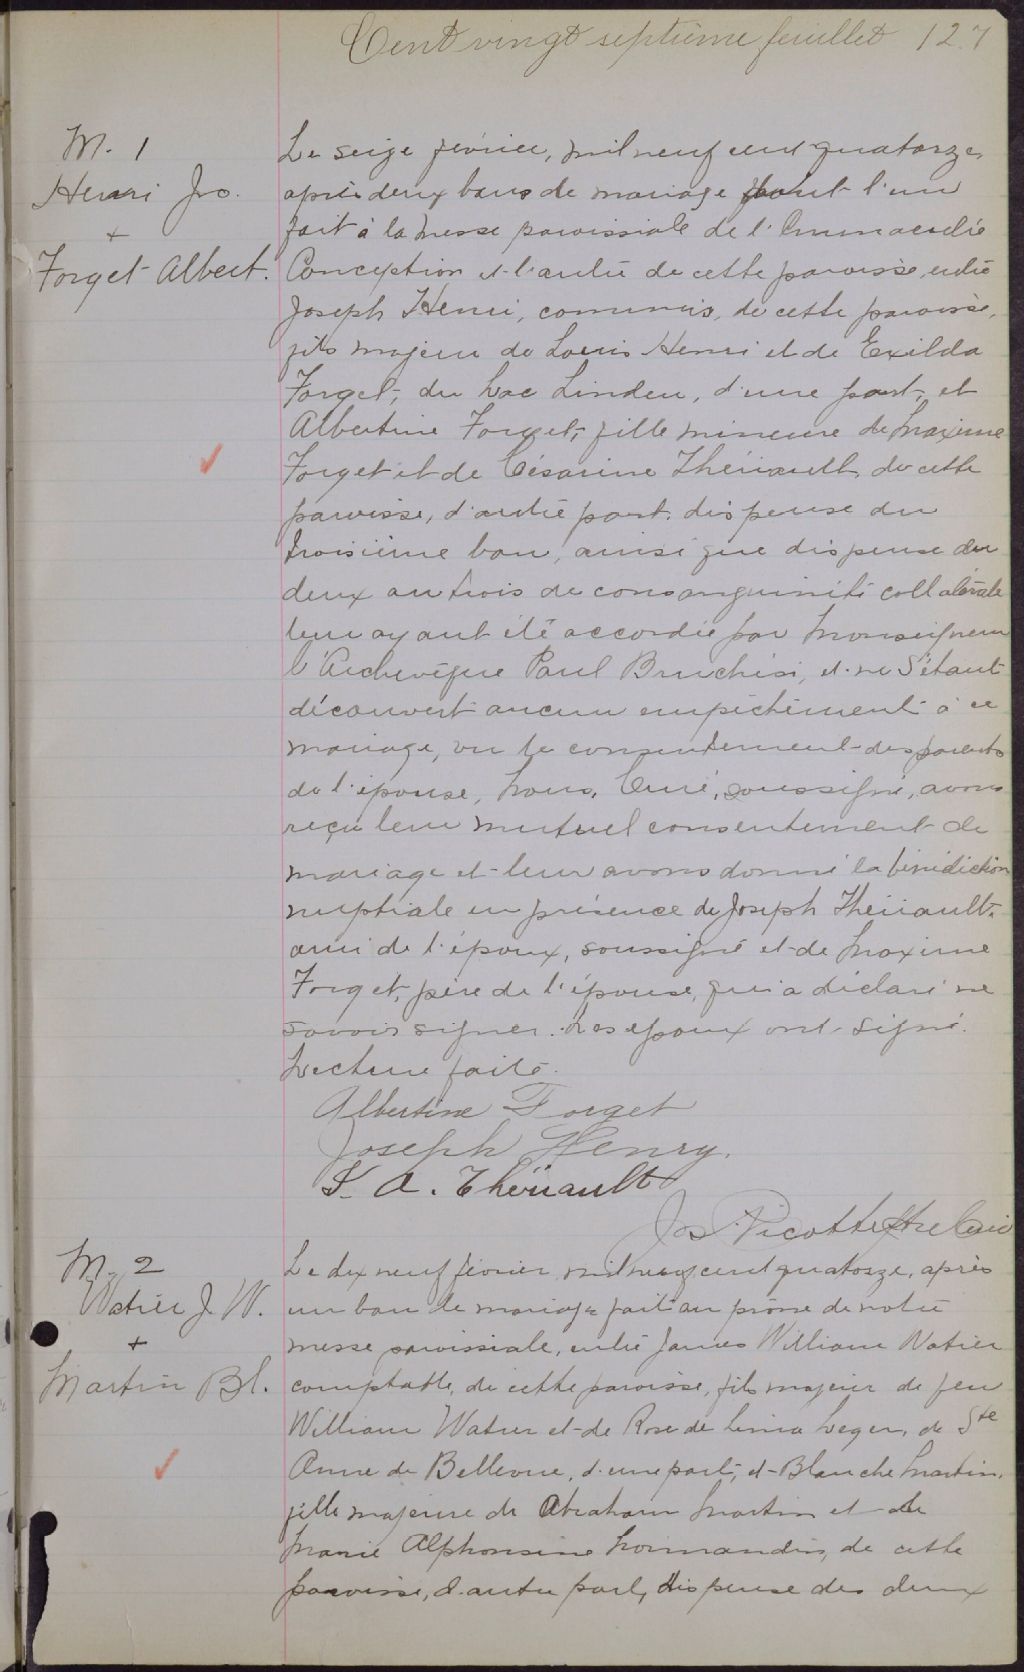 Cent vingt septième feuillet 127
M. 1
Henri Jos.
+
Forget Albert.
Le seize février, mil neuf cent quatorze,
après deux bans de mariage dont l'un
fait à la messe paroissiale de l'Immaculée
Conception et l'autre de cette paroisse, entre
Joseph Henri, commis, de cette paroisse,
fils majeur de Louis Henri et de Exilda
Forget, du Lac Linden, d'une part, et
Albertine Forget, fille mineure de Maxime
Forget et de Césarine Thériault, de cette
paroisse, d'autre part, dispense du
troisième ban, ainsi que dispense du
deux au trois de consanguinité collatérale
leur ayant été accordée par Monseigneur
l'Archevêque Paul Bruchési, et ne s'étant
découvert aucun empêchement à ce
mariage, vu le consentement des parents
de l'épouse, Nous, Curé, soussigné, avons
reçu leur mutuel consentement de
mariage et leur avons donné la bénédiction
nuptiale en présence de Joseph Thériault,
ami de l'époux, soussigné et de Maxime
Forget, père de l'épouse, qui a déclaré ne
savoir signer. Les époux ont signé.
Lecture faite.
Albertine Forget
Joseph Henry.
J. A. Thériault
Jos. Picotte Ptre Curé
M. 2
Watier J. W.
+
Martin Bl.
Le dix neuf février mil neuf cent quatorze, après
un ban de mariage fait au prône de notre
messe paroissiale, entre James William Watier
comptable, de cette paroisse, fils majeur de feu
William Watier et de Rose de Lima Leger, de Ste
Anne de Bellevue, d'une part, et Blanche Martin,
fille majeure de Abraham Martin et de
Marie Alphonsine Normandin, de cette
paroisse, d'autre part, dispense des deux